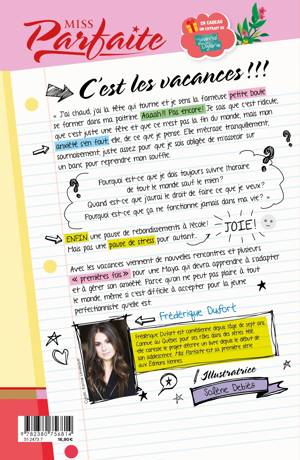 MISS
Parfaite
EN CADEAU
UN EXTRAIT DE
C'est les vacances !!!
« J'ai chaud, j'ai la tête qui tourne et je sens la fameuse petite boule
se former dans ma poitrine. Aaaah!! Pas encore! Je sais que c'est ridicule,
que c'est juste une fête et que ce n'est pas la fin du monde, mais mon
anxiété s'en fout, elle, de ce que je pense. Elle m'écrase tranquillement,
sournoisement, juste assez pour que je sois obligée de m'asseoir sur
un banc pour reprendre mon souffle.
Pourquoi est-ce que je dois toujours suivre l'horaire
de tout le monde sauf le mien?
Quand est-ce que j'aurai le droit de faire ce que je veux?
Pourquoi est-ce que ça ne fonctionne jamais dans ma vie? »
ENFIN une pause de rebondissements à l'école!
Mais pas une pause de stress pour autant...
JOIE!
Avec les vacances viennent de nouvelles rencontres et plusieurs
« premières fois » pour une Maya qui devra apprendre à s'adapter
et à gérer son anxiété. Parce qu'on ne peut pas plaire à tout
le monde, même si c'est difficile à accepter pour la jeune
perfectionniste qu'elle est.
Frédérique Dufort
Frédérique Dufort est comédienne depuis l'âge de sept ans.
Connue au Québec pour ses rôles dans des séries télé,
elle caresse le projet d'écrire un livre depuis le début de
son adolescence. Miss Parfaite est sa première série
aux Éditions Kennes.
Illustratrice
Solène Debiès
9 782380 756814
51.2473.7
16,90€